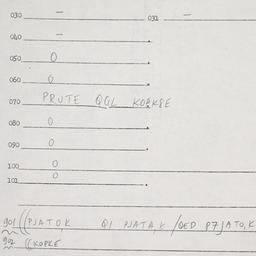 030 – 031 –
040 –
050 0
060 0
070 PRUTE QGL
080 0
090 0
100 0
101 0
901 ((PJATO,K QI PJATA,K/QED P7JATO,K
902 ((KOPKE